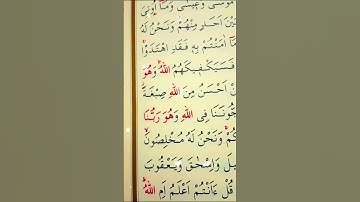 مُوسٰى وَع۪يسٰى وَمَٓا اُو۫تِىَ
بَيْنَ اَحَدٍ مِنْهُمْ وَنَحْنُ لَهُ
مَٓا اٰمَنْتُمْ بِه۪ فَقَدِ اهْتَدَوْا
فَسَيَكْف۪يكَهُمُ اللّٰهُ وَهُوَ
نْ اَحْسَنُ مِنَ اللّٰهِ صِبْغَةً
جُّونَنَا فِى اللّٰهِ وَهُوَ رَبُّنَا
كُمْ وَنَحْنُ لَهُ مُخْلِصُونَ
يلَ وَاِسْحٰقَ وَيَعْقُوبَ
قُلْ ءَاَنْتُمْ اَعْلَمُ اَمِ اللّٰهُ